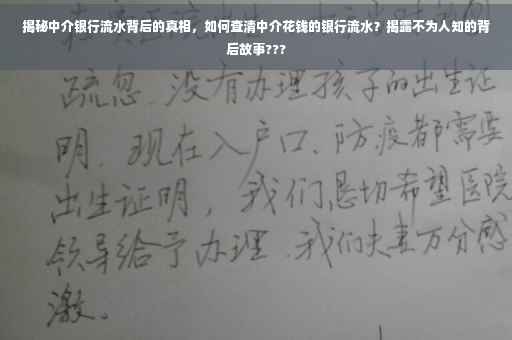 揭秘中介银行流水背后的真相，如何查清中介花钱的银行流水？揭露不为人知的背
后故事???
疏忽.没有办理孩子的出生证
明.现在入户口、防疫都需要
出生证明，我们恳切希望医院
领导给予办理.我们夫妻万分感
激。